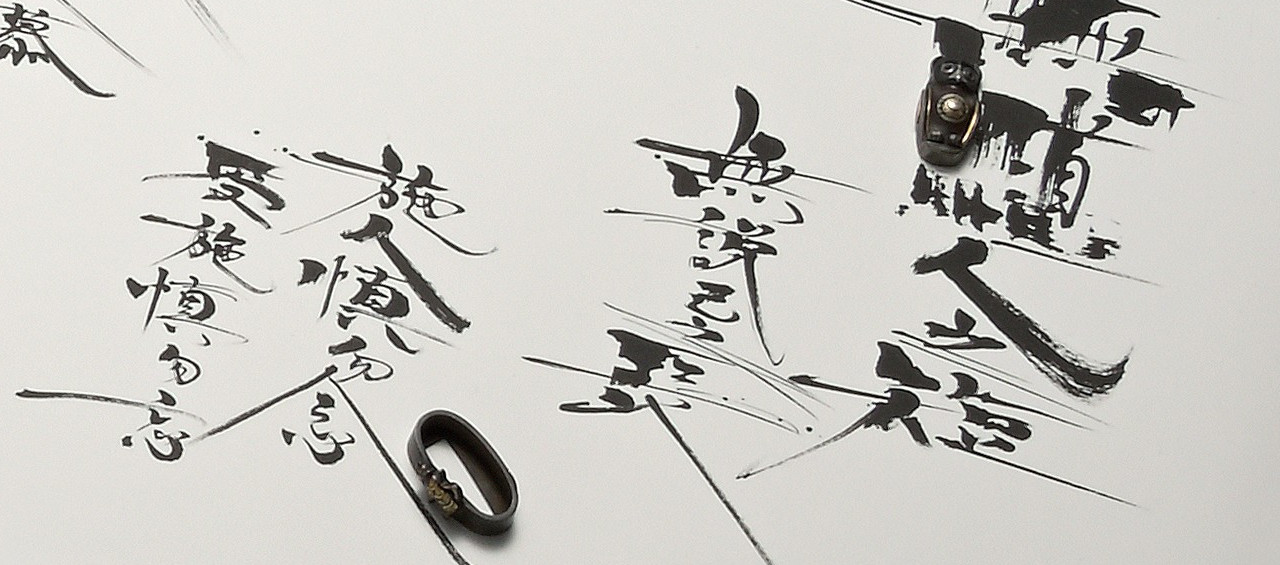 人之短
無說己之長
施人慎勿念
受施慎勿忘
慕